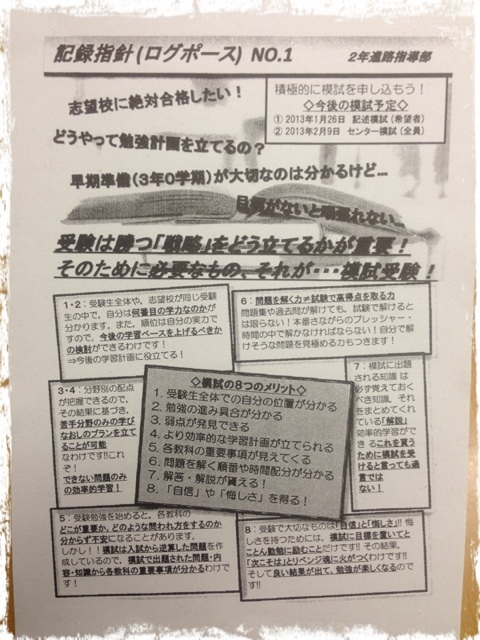 記録指針(ログポース) NO.1
2年進路指導部
志望校に絶対合格したい!
積極的に模試を申し込もう!
◇今後の模試予定◇
① 2013年1月26日 記述模試(希望者)
② 2013年2月9日 センター模試(全員)
どうやって勉強計画を立てるの?
早期準備(3年0学期)が大切なのは分かるけど…
目標がないと頑張れない…
受験は勝つ「戦略」をどう立てるかが重要!
そのために必要なもの、それが・・・模試受験!
1・2:受験生全体や、志望校が同じ受験
生の中で、自分は何番目の学力なのかが
分かります。また、順位は自分の実力で
すので、今後の学習ペースを上げるべきか
の検討ができるわけです!
⇒今後の学習計画に役立てる!
6:問題を解く力≠試験で高得点を取る力
問題集や過去問が解けても、試験で解けると
は限らない!本番さながらのプレッシャー・
時間の中で解かなければならない!自分で解
けそうな問題を見極める力もつきます!
3・4:分野別の配点
が把握できるので、
その結果に基づき、
苦手分野のみの学び
なおしのプランを立て
ることが可能
なわけです!!これ
ぞ!
できない問題のみ
の効率的学習!
◇模試の8つのメリット◇
1. 受験生全体での自分の位置が分かる
2. 勉強の進み具合が分かる
3. 弱点が発見できる
4. より効率的な学習計画が立てられる
5. 各教科の重要事項が見えてくる
6. 問題を解く順番や時間配分が分かる
7. 解答・解説が貰える!
8. 「自信」や「悔しさ」を得る!
7:模試に出題
される知識 は
必ず覚えておく
べき知識。それ
をまとめてくれ
ている「解説」
効率的学習がで
きるこれを貰う
ために模試を受
けると言っても過
言では
ない!
5:受験勉強を始めると、各教科の
どこが重要か、どのような問われ方をするのか
分からず不安になることがあります。
しかし!!模試は入試から逆算した問題を作
成しているので、模試で出題された問題・内
容・知識から各教科の重要事項が分かるわけで
す!
8:受験で大切なものは「自信」と「悔しさ」!!悔
しさを持つためには、模試に目標を置いてと
ことん勤勉に励むことだけです!!その結果、
「次こそは」とリベンジ魂に火がつくわけです!!
そして良い結果が出て、勉強が楽しくなるので
す!!